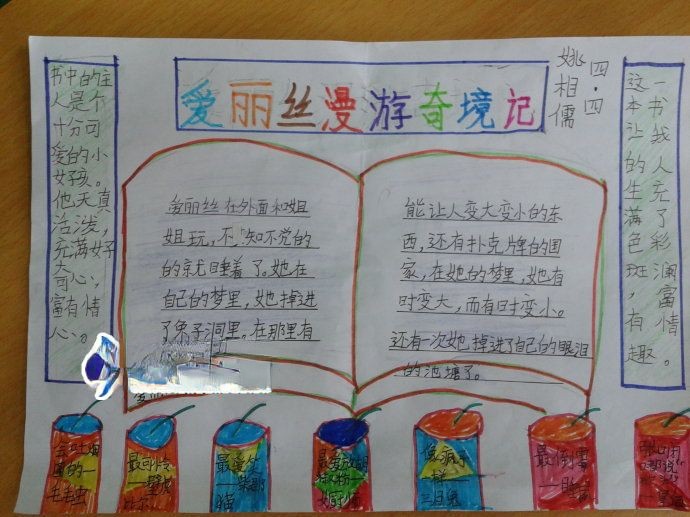 爱丽丝漫游奇境记
四.四
姚相儒
书中的主
人是个
十分可
爱的小
女孩。
他天真
活泼，
充满好
奇心，
富有情
心。
爱丽丝在外面和姐
姐玩，不知不觉的
的就睡着了。她在
自己的梦里，她掉进
了兔子洞里。在那里有
能让人变大变小的东
西，还有扑克牌的国
家，在她的梦里，她有
时变大，而有时变小。
还有一次她掉进了自己的眼泪
的池塘了。
一书我人充了彩澜富情。
这本让的生满色斑，有趣
会吐烟
圈的一
毛毛虫
最可怜
最爱笑
猫
最爱放胡
椒粉一
女厨师
像疯子
一样一
三月兔
最倒霉